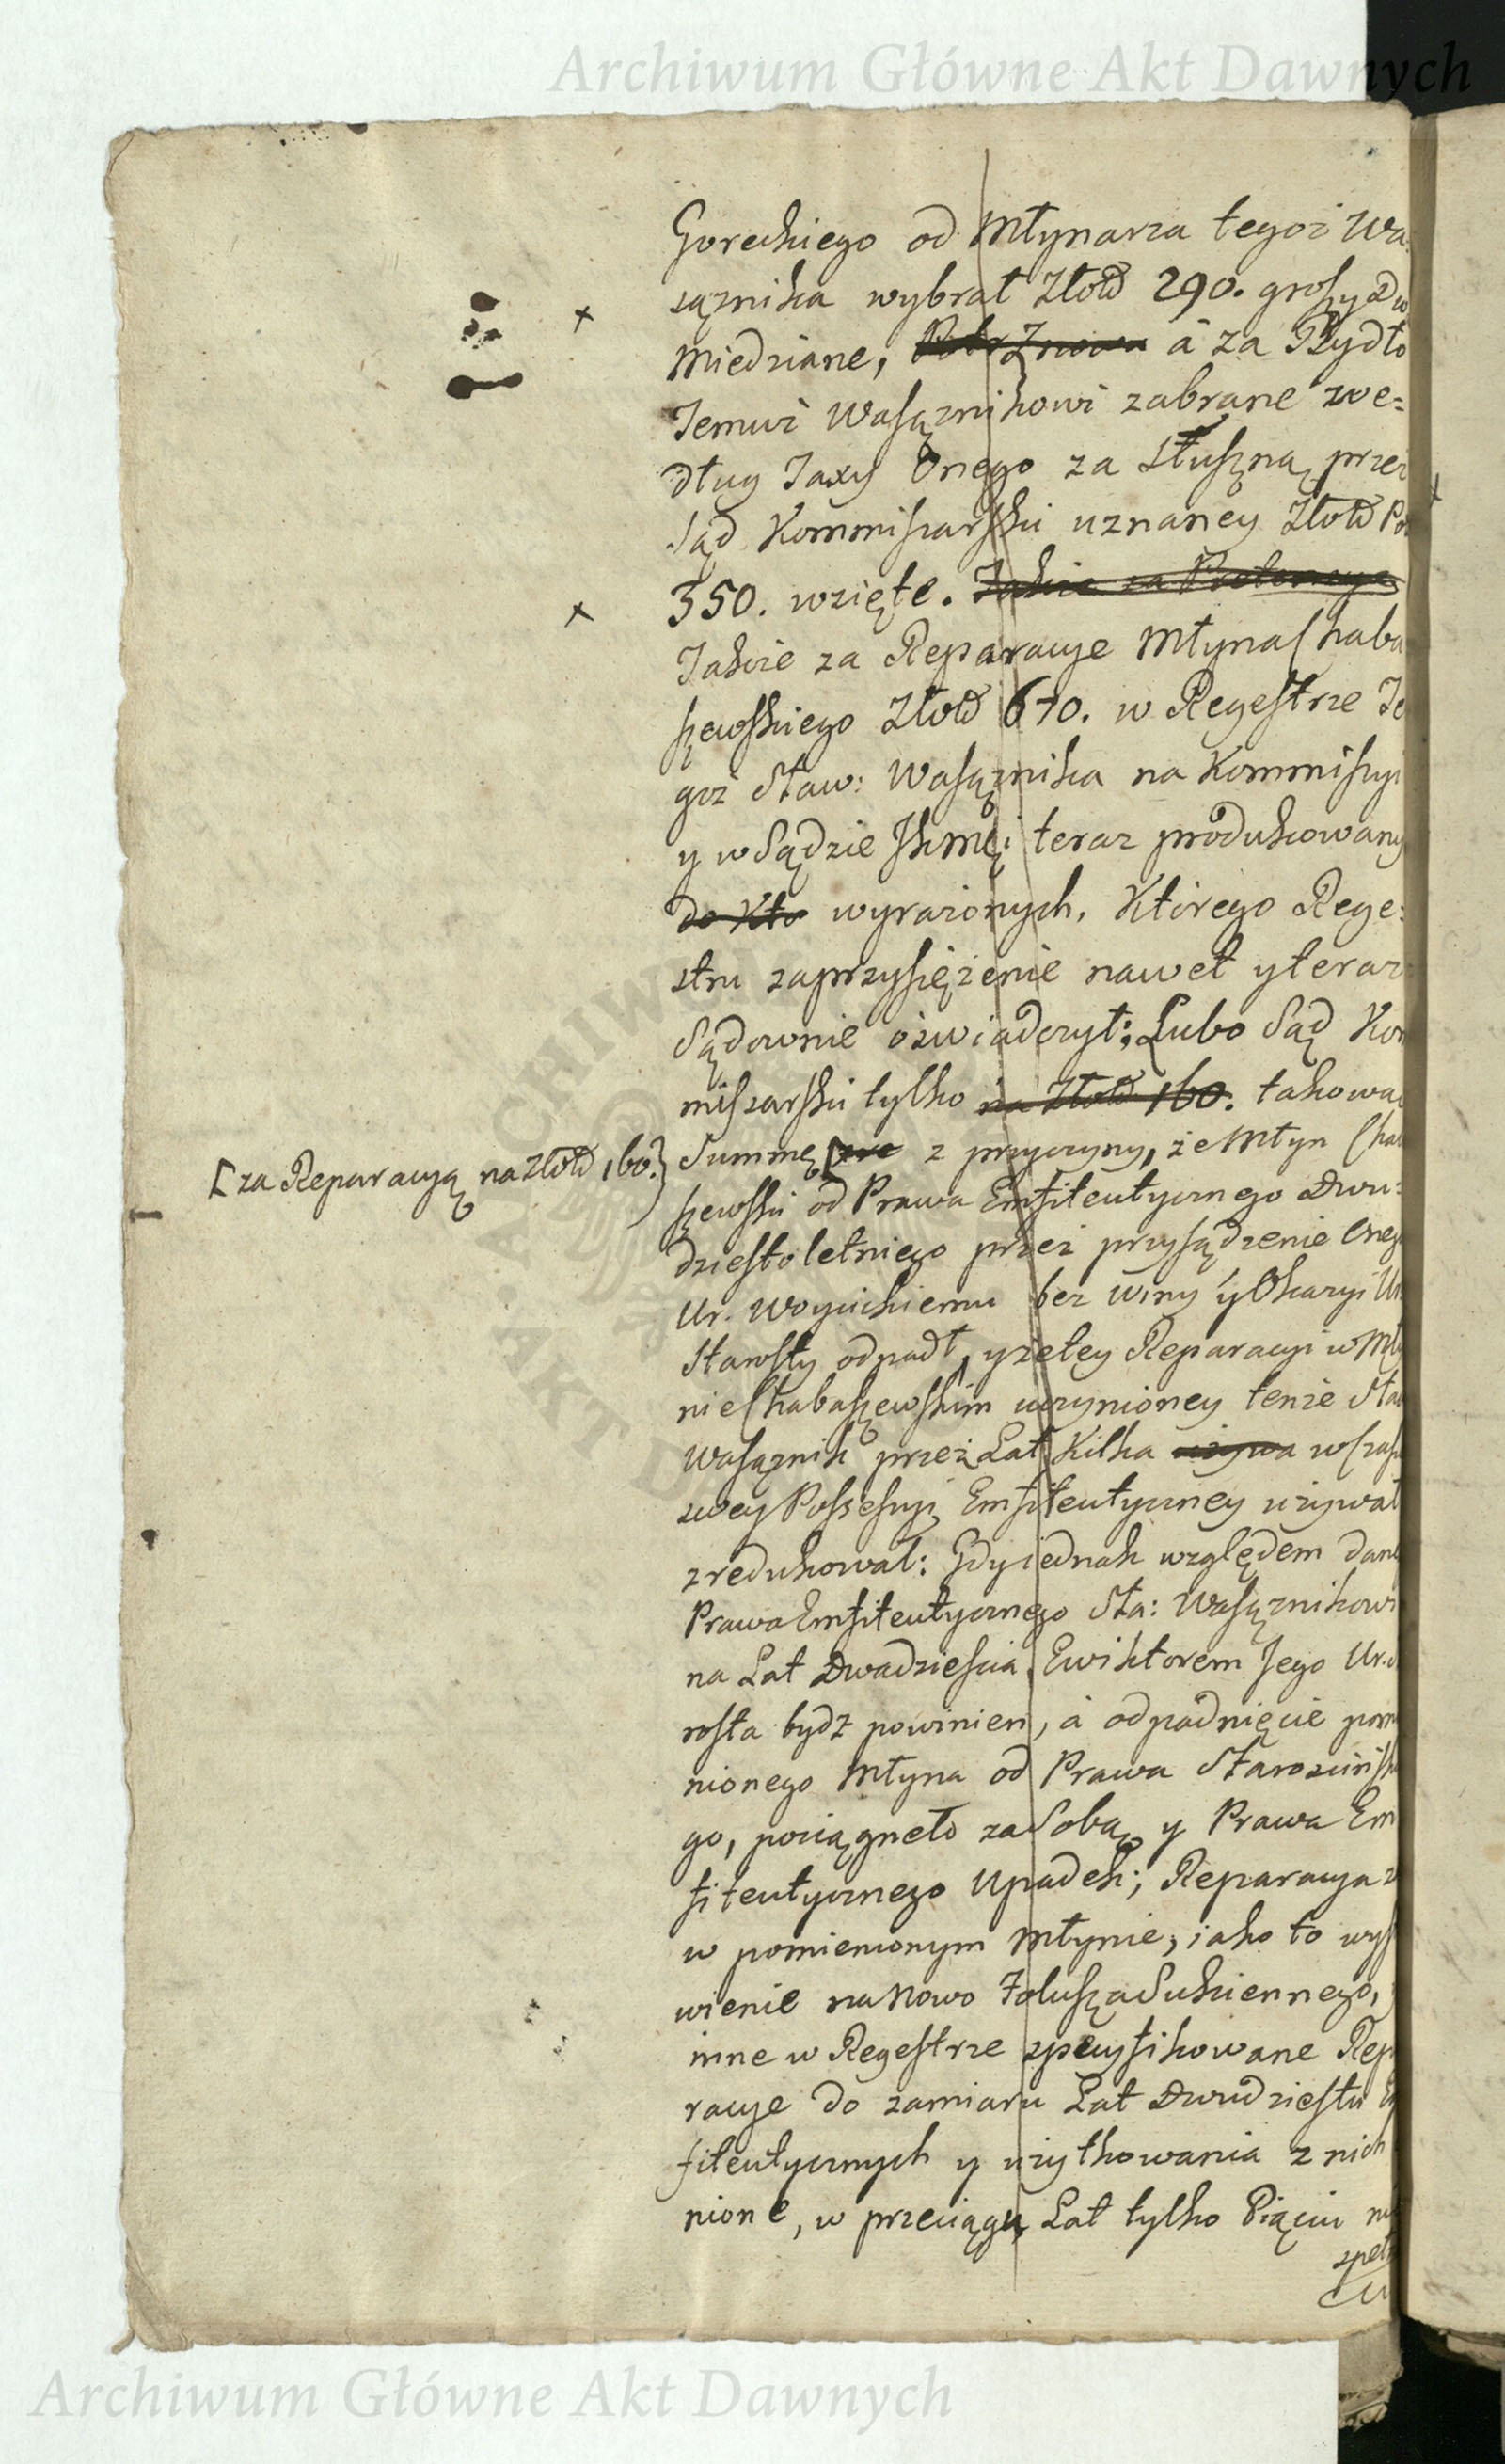 Archiwum Główne Akt Dawnych
Goreckiego od Młynarza tegoż Wa
sąznika wybrał Złotd 290. groszy dw
Miedziane, a za Bydło
Temuż Wasąznikowi zabrane we=
dług Taxy Onego za Słuszną przez
Sąd Kommissarski uznaney Złotd Po
350. wzięte. Także za Pretensye
Także za Reparacye Młyna Chaba
szewskiego Złotd 670. w Regestrze Te
goż Staw: Wasąznika na Kommissyi
y w Sądzie JKMci teraz produkowany
do Kto wyrażonych, Którego Rege:
stru zaprzysiężenie nawet y teraz
Sądownie oswiadczył; Lubo Sąd Kom
missarski tylko na Złotd 160. takowa
[za Reparacyą na Złotd 160.} Summę z przyczyny, że Młyn Chab
szewski od Prawa Emfiteutycznego Dwu=
dziestoletniego przez przysądzenie Oneg
Ur. Woycickiemu bez winy y Okazyi Ur
Starosty odpadł, y zetey Reparacyi w Mły
nie Chabaszewskim uczynioney tenże Sta
Wasąznik przez Lat Kilka używa w czas
swey Possessyi Emfiteutyczney używał
zredukował: Gdy iednak względem dane
Prawa Emfiteutycznego Sta: Wasąznikowi
na Lat Dwadziescia, Ewiktorem Jego Ur.
rosta bydz powinien, a odpadnięcie pom
nionego Młyna od Prawa Starościńsk
go, pociągneło za Sobą y Prawa Em
fiteutycznego Upadek; Reparacya
w pomienionym Młynie, iako to wys
wienie na Nowo Folusza Sukiennego,
inne w Regestrze specyfikowane Rep
racye do zamiaru Lat Dwudziestu
fiteutycznych y użytkowania z nich
nione, w przeciągu Lat tylko Piąciu
Archiwum Główne Akt Dawnych